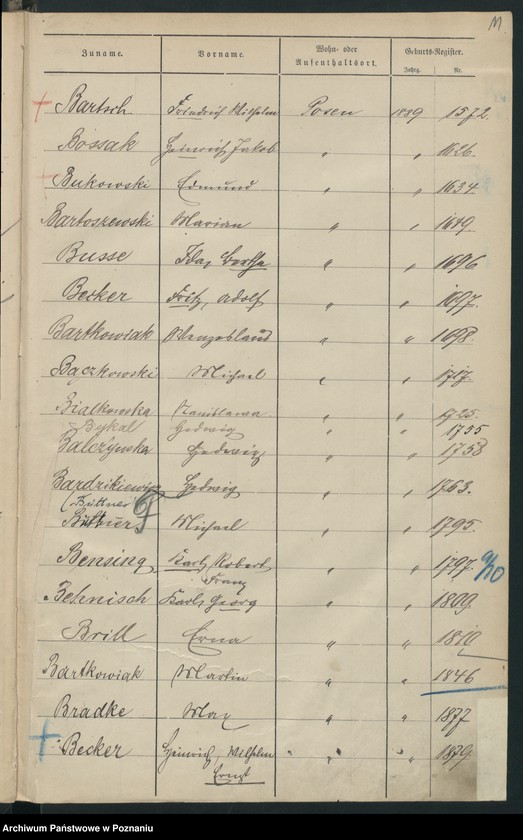 M.
Zuname. Vorname. Wohn- oder Aufenthaltsort. Geburts-Register.
Jahrg. Nr.
Bartsch Friedrich Wilhelm Posen 1889 1572.
Bossak Heinrich Jakob " " 1626.
Bukowski Edmund " " 1634
Bartoszewski Marian " " 1649.
Busse Ida, Bertha " " 1696
Becker Fritz, Adolf " " 1697.
Bartkowiak " " 1698.
Bączkowski Michael " " 1717.
Bialkowska " " 1725.
Bykal Hedwig " " 1755
Balczynska Hedwig " " 1758
Bardzikiewicz Hedwig " " 1763.
(Büttner
Michael " " 1795.
Bensing Karl, Robert " " 1797.
Franz
Behnisch Karl, Georg " " 1809.
Brill Erna " " 1810
Bartkowiak Martin " " 1846
Bradke Max " " 1877
Becker Heinrich, Wilhelm " " 1879.
Ernst
Archiwum Państwowe w Poznaniu